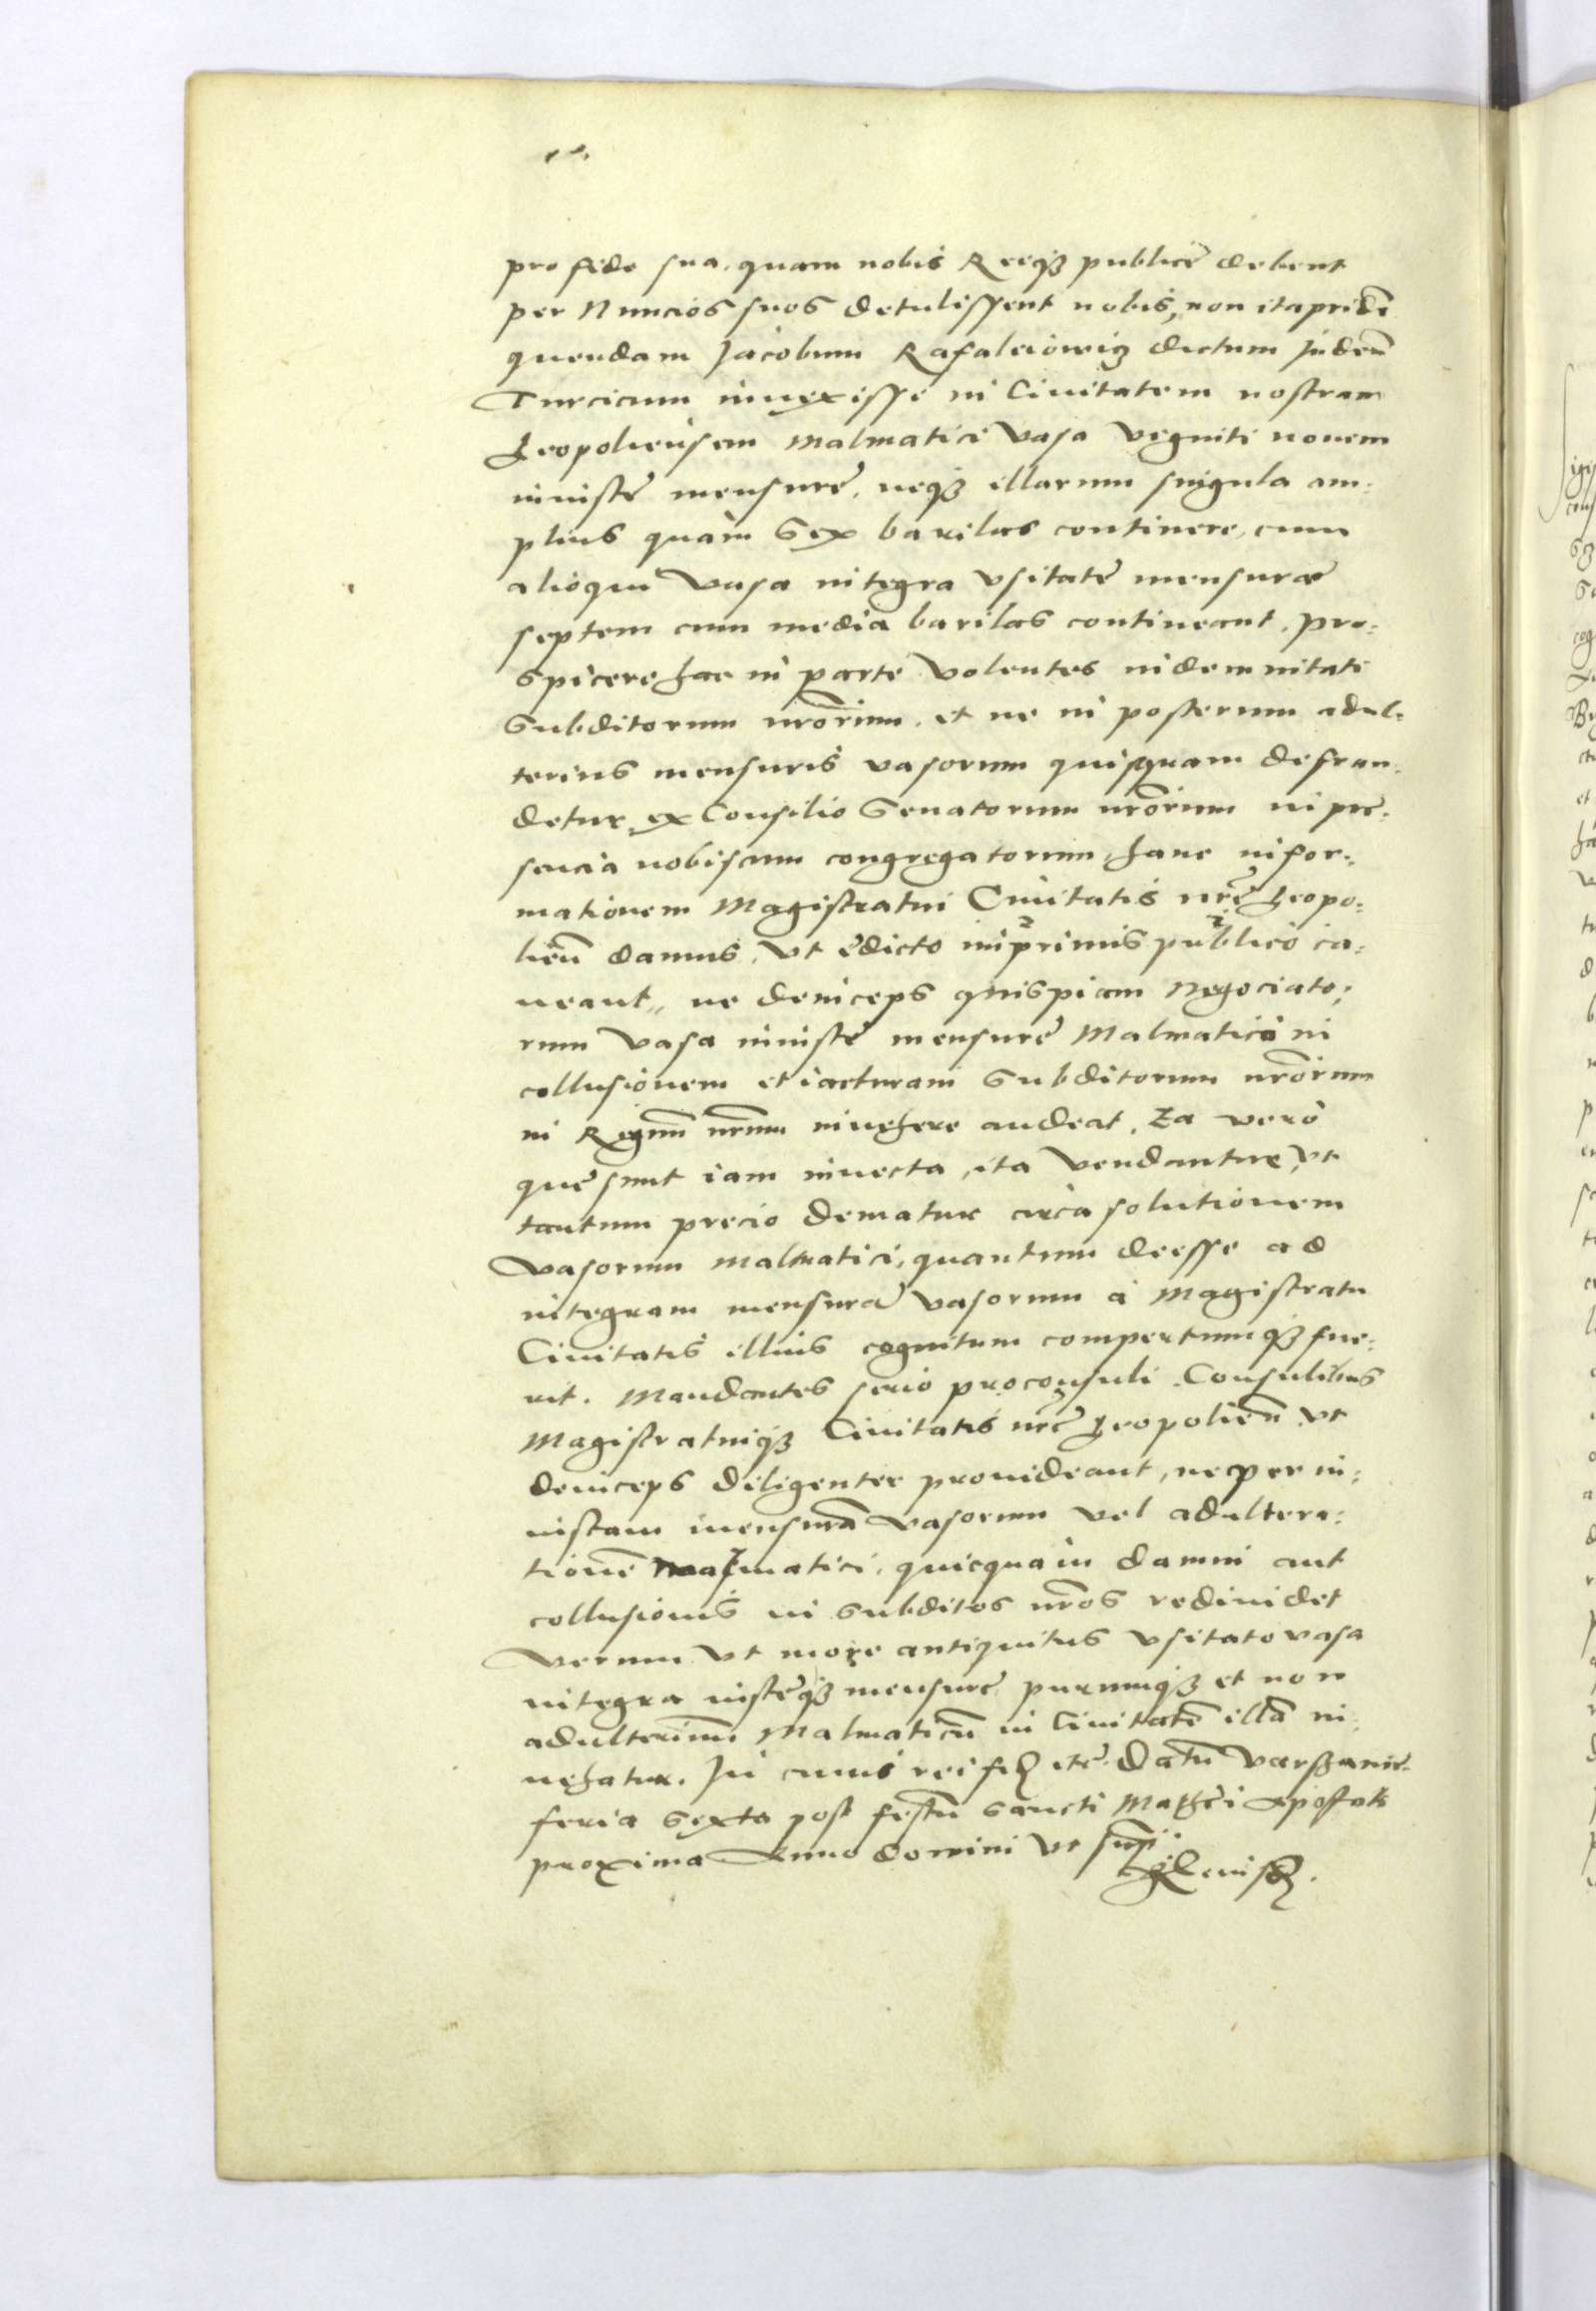 pro fide sua, quam nobis Reiq₃ publicę debent
per Nuncios suos detulissent nobis, non ita pridẽ
quendam Jacobum Rafalciowicz dictum Judeũ
Turcicum inuexisse in Ciuitatem nostram
Leopoliensem Malmatici Vasa Viginti nouem
iniustę mensurę, neq₃ illarum singula am:
plius quàm sex barilas continere, cum
alioqui Vasa integra vsitatę mensuræ
septem cum media barilas contineant, pro:
spicere hac in parte Volentes indemnitati
Subditorum nrõrum, et ne in posterum adul:
terinis mensuris vasorum quisquam defrau:
detur, ex Consilio Senatorum nrõrum in prę:
sencia nobiscum congregatorum, hanc infor:
mationem Magistratui Ciuitatis nrę̃ Leopo:
lieñ damus, Vt ędicto inprimis publico ca:
ueant, ne deinceps quispiam Negociato:
rum Vasa iniustę mensurę Malmatici in
collusionem et iacturam Subditorum nrõrum
in Regnũ nrũm inuehere audeat, Ea vero
quę sunt iam inuecta, ita Vendantur, vt
tantum precio dematur circa solutionem
Vasorum Malmatici, quantum deesse ad
integram mensurã vasorum à Magistratu
Ciuitatis illius cognitum compertumq₃ fue:
rit. Mandantes serio proconsuli Consulibus
Magistratuiq₃ Ciuitatis nrę̃ Leopolieñ vt
deinceps diligenter prouideant, ne per in:
iustam mensurã Vasorum vel adultera:
tionẽ Malmatici, quicquam damni aut
collusionis in subditos nrõs redundet
Verum Vt more antiquitus vsitato vasa
integra iustęq₃ mensurę purumq₃ et non
adulterinũ Malmaticũ in Ciuitatẽ illã in:
uehatur. In cuius rei fid etc̃. Datũ Varschauię
feria sexta post festũ sancti Mathei Apostoli
proxima Anno domini Vt sup̃